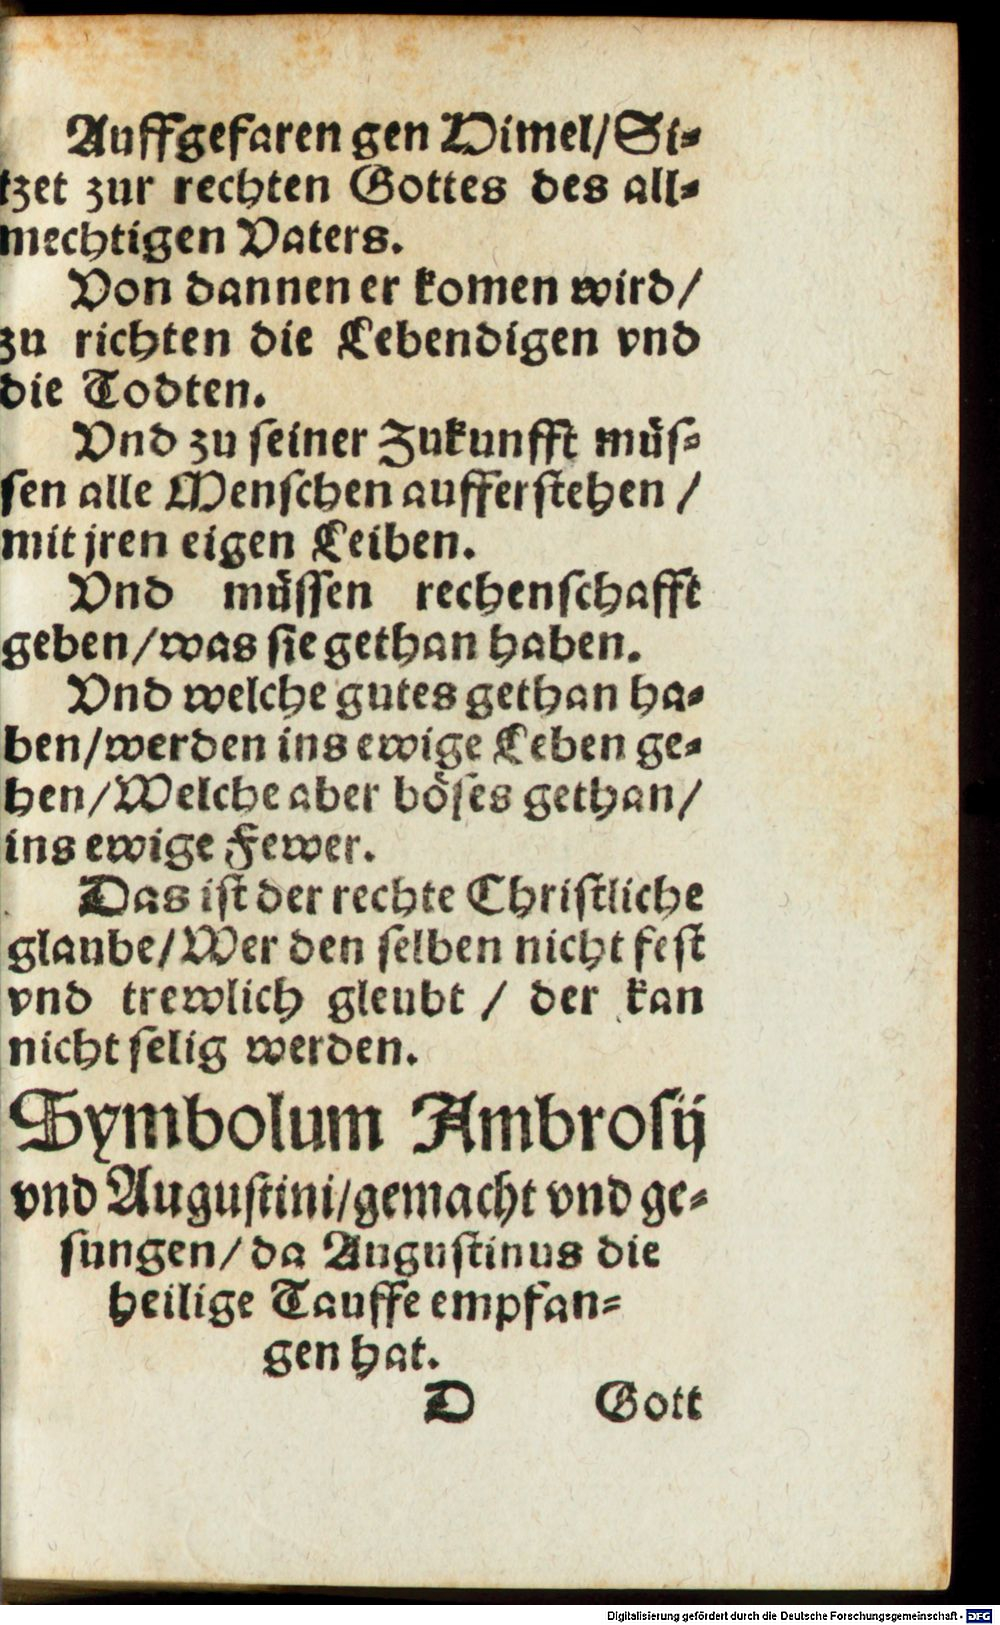 Auffgefaren gen Himel/Si⸗
tzet zur rechten Gottes des all⸗
mechtigen Vaters.
Von dannen er komen wird/
zu richten die Lebendigen vnd
die Todten.
Vnd zu seiner Zukunfft müs⸗
sen alle Menschen aufferstehen /
mit jren eigen Leiben.
Vnd müssen rechenschafft
geben/was sie gethan haben.
Vnd welche gutes gethan ha⸗
ben/werden ins ewige Leben ge⸗
hen/Welche aber böses gethan/
ins ewige Fewer.
Das ist der rechte Christliche
glaube/Wer den selben nicht fest
vnd trewlich gleubt / der kan
nicht selig werden.
Symbolum Ambrosij
vnd Augustini/gemacht vnd ge⸗
sungen/da Augustinus die
heilige Tauffe empfan⸗
gen hat.
D Gott
Digitalisierung gefördert durch die Deutsche Forschungsgemeinschaft - DFG